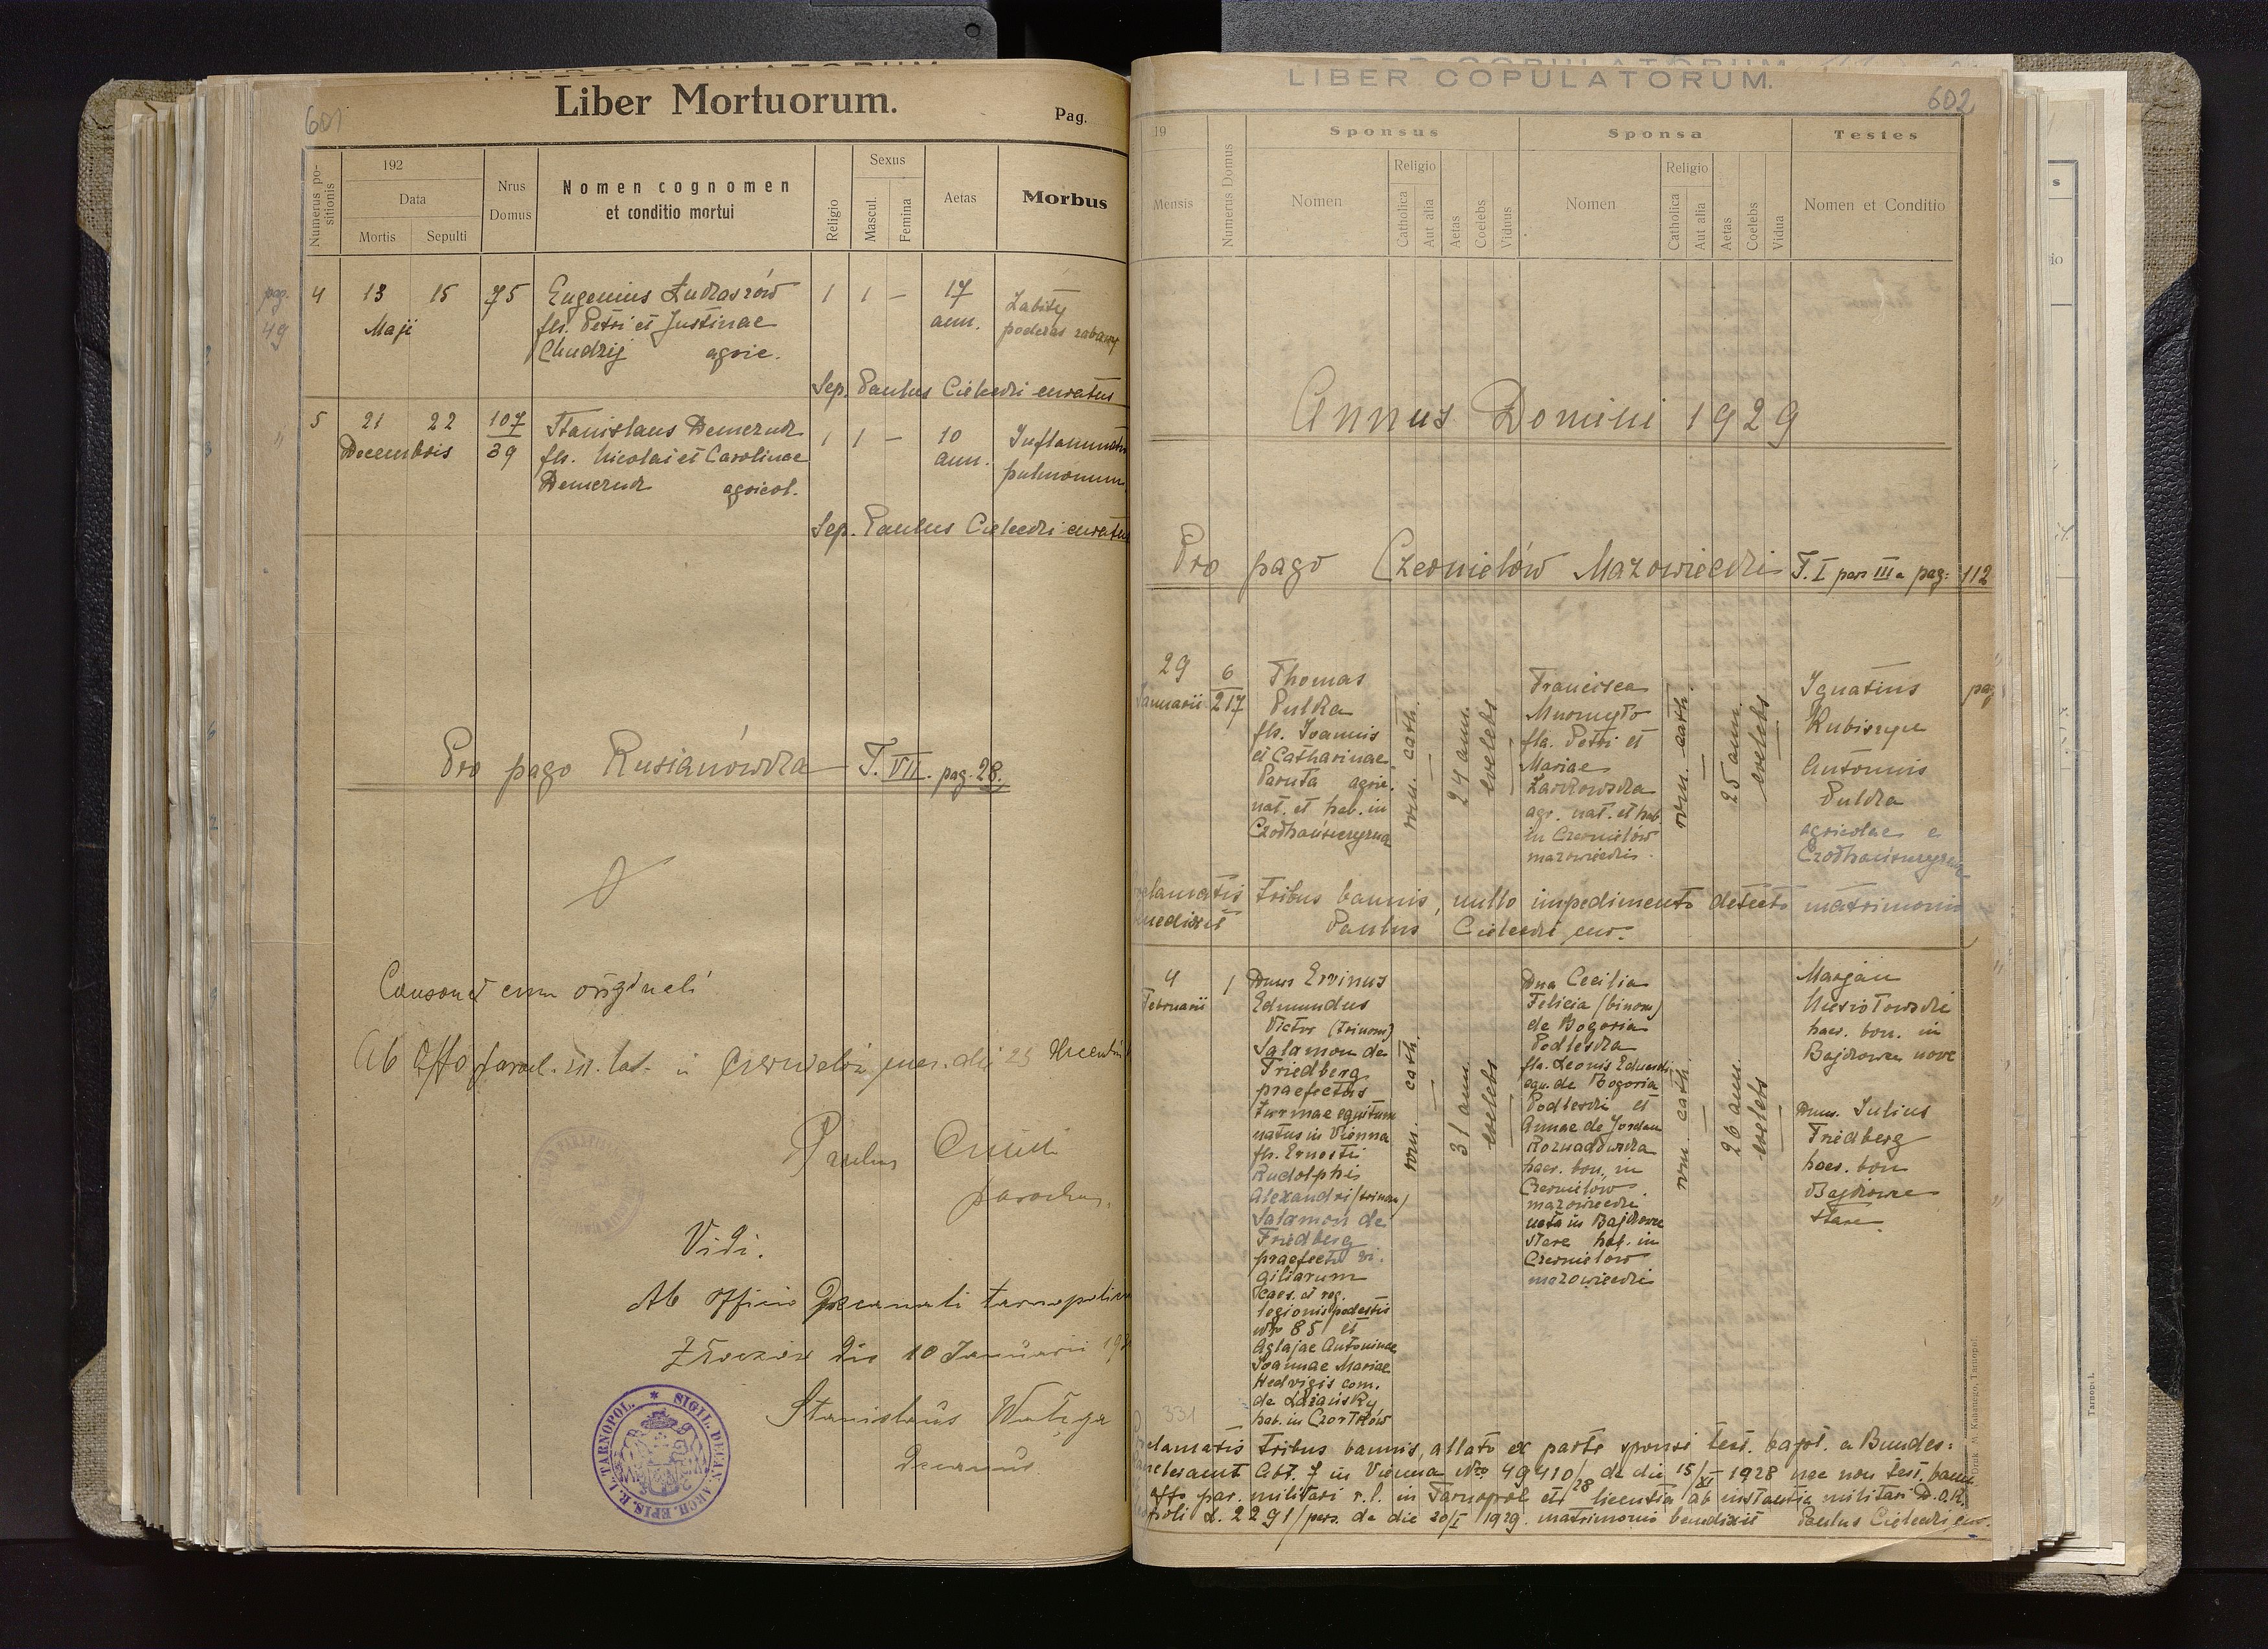 601
Liber Mortuorum.
Pag.
Numerus positionis
192
Data
Mortis
Sepulti
Nrus Domus
Nomen cognomen
et conditio mortui
Religio
Sexus
Mascul.
Femina
Aetas
Morbus
pag. 49
4 13 15 75 Eugenius 1 1 — 17 Zabity
Maji fls. Petri et Justinae ann. podczas zabawy
Chudzij agric.
Sep. Paulus curatus
5 21 22 107 Stanislaus 1 1 — 10
Decembris 39 fls. Nicolai et Carolinae ann. pulmonum
agricol.
Sep. Paulus
Pro pago Rusianówka T. VII. pag. 28.
Consonat cum originali
Ab Offo paroch. rit. lat. in
Paulus
parochus.
Vidi.
Ab officio Decanali
die 10 Januarii
Stanislaus
Decanus
SIGIL. DECAN. ARCH. EPIS. R. L. TARNOPOL.
LIBER COPULATORUM.
602
19
Mensis
Numerus Domus
Sponsus
Nomen
Religio
Catholica
Aut alia
Aetas
Coelebs
Viduus
Sponsa
Nomen
Religio
Catholica
Aut alia
Aetas
Coelebs
Vidua
Testes
Nomen et Conditio
Annus Domini 1929
Pro pago Czernielów Mazowiecki T. I pars III a pag: 112
29
Januarii
6
217
Thomas
Pulka
fls. Joannis
et Catharinae
Paruta agric.
nat. et hab. in
rom. cath.
24 ann.
coelebs
Francisca
fla. Petri et
Mariae
agr. nat. et hab
in Czernielów
mazowiecki.
rom. cath.
25 ann.
coelebs
Ignatius
Kubiszyn
Antonius
Pulka
agricolae e
tribus bannis, nullo impedimento detecto matrimonio
Paulus
4
Februarii
1
Dnus Ervinus
Edmundus
Victor (trinom)
Salamon de
Friedberg
praefectus
turmae equitum
natus in Vienna
fls. Ernesti
Rudolphi
Alexandri (trinom)
Salamon de
Friedberg
praefecti vi-
giliarum
Caes. et reg.
legionis pedestris
Nro 85 et
Aglajae Antoninae
Joannae Mariae
Hedvigis com.
de
hab. in Czortków
rom. cath.
31 ann.
coelebs
Dna Cecilia
Felicia (binom)
de Bogoria
Podleska
fla. Leonis Eduardi
equ. de Bogoria
Podleski et
Annae de Jordan
Rozwadowska
haer. bon. in
Czernielów
mazowiecki
nata in Bajkowce
stare hab. in
Czernielów
mazowiecki
rom. cath.
26 ann.
coelebs
Marjan
haer. bon. in
Bajkowce nove
Dnus. Julius
Friedberg
haer. bon
Bajkowce
stare.
331
tribus bannis, allato ex parte sponsi test. bapt. a Bundes-
Abt. 7 in Vienna Nro 49410/28 de die 15/XI 1928 nec non test. bann.
offo par. militari r. l. in Tarnopol et licentia ab instantia militari D.O.K.
L. 2291/pers. de die 20/I 1929. matrimonio benedixit Paulus